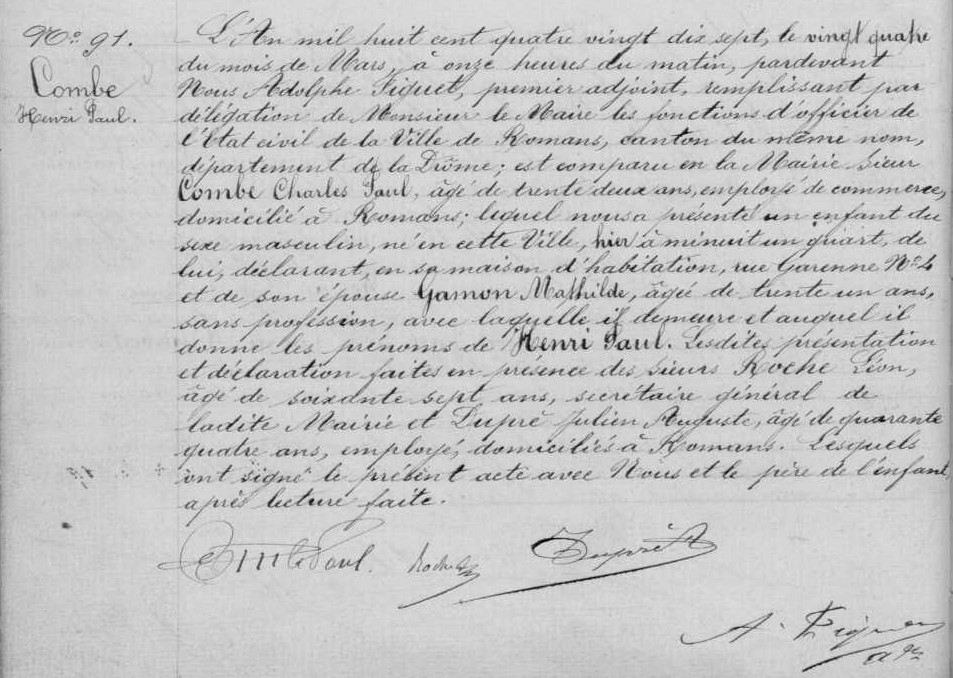 No. 91.
Combe
Henri Paul.
L'An mil huit cent quatre vingt dix sept, le vingt quatre
du mois de Mars, à onze heures du matin, pardevant
Nous Adolphe Figuet, premier adjoint, remplissant par
délégation de Monsieur le Maire les fonctions d'officier de
l'Etat civil de la Ville de Romans, canton du même nom,
département de la Drôme; est comparu en la Mairie sieur
Combe Charles Paul, âgé de trente deux ans, employé de commerce,
domicilié à Romans; lequel nous a présenté un enfant du
sexe masculin, né en cette Ville, hier à minuit un quart, de
lui, déclarant, en sa maison d'habitation, rue Garenne No. 4
et de son épouse Gamon Mathilde, âgée de trente un ans,
sans profession, avec laquelle il demeure et auquel il
donne les prénoms de Henri Paul. Lesdites présentation
et déclaration faites en présence des sieurs Roche Léon,
âgé de soixante sept ans, secrétaire général de
ladite Mairie et Dupré Julien Auguste, âgé de quarante
quatre ans, employé, domiciliés à Romans. Lesquels
ont signé le présent acte avec Nous et le père de l'enfant,
après lecture faite.
Combe Paul. Roche Dupré A
A. Figuet